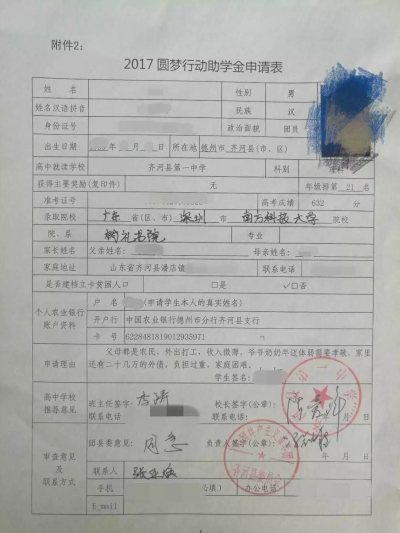 附件2：
2017 圆梦行动助学金申请表
姓 名 性别 男
姓名汉语拼音 民族 汉
身份证号 政治面貌 团员
出生日期 年 月 日 所在地 德州市 齐河县(市、区)
高中就读学校 齐河县第一中学 科别
获得主要奖励(复印件) 无 年级排第 21 名
准考证号 高考成绩 632 分
录取院校 广东 省(区、市) 深圳 市 南方科技大学 院校
院、系 树礼书院 专业
家长姓名 父亲姓名: 母亲姓名:
家庭地址 山东省齐河县潘店镇 联系电话
是否建档立卡贫困人口 □是 ✓□否
个人农业银行账户资料 户 名 (申请学生本人的真实姓名)
开户行 中国农业银行德州市分行齐河县支行
卡 号 6228481819012935971
申请理由 父母都是农民，外出打工，收入微薄，爷爷奶奶年迈体弱需要孝敬，家里
还有二十几万的外债，负担过重、家庭困难。
学生签名:
高中学校推荐意见 班主任签字: 校长签字(公章):
联系电话: 联系电话: 月 日
审查意见及联系方式 团县委意见: 同意 负责人签字(公章):
年 月 日
联系人
手机 公(填) 办公电话
E_mail